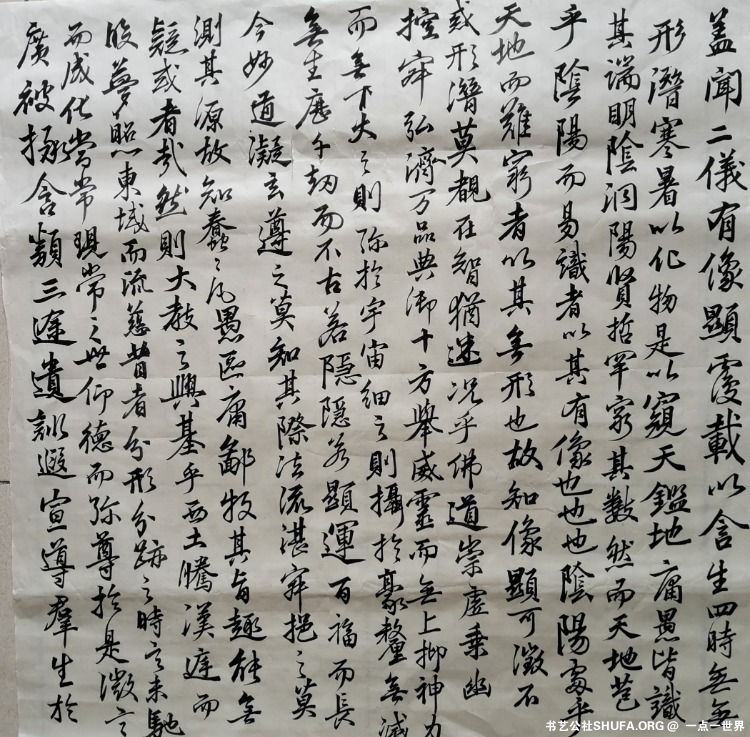 盖聞二儀有像顯覆載以含生四時無
形潛寒暑以化物是以窺天鑑地庸愚皆識
其端明陰洞陽賢哲罕窮其數然而天地苞
乎陰陽而易識者以其有像也也也陰陽處乎
天地而難窮者以其無形也故知像顯可徵不
或形潛莫覩在智猶迷況乎佛道崇虛乘幽
控寂弘濟万品典御十方舉威靈而無上抑神力
而無下大之則弥於宇宙細之則攝於豪釐無滅
無生歷千劫而不古若隱隱若顯運百福而長
今妙道凝玄遵之莫知其際法流湛寂挹之莫
測其源故知蠢々凡愚區庸鄙投其旨趣能無
疑或者哉然則大教之興基乎西土騰漢庭而
皎夢照東域而流慈昔者分形分跡之時言未馳
而成化當常現常之世仰德而弥尊於是微言
廣被拯含類三途遺訓遐宣導羣生於
书艺公社SHUFA.ORG @ 一点一世界